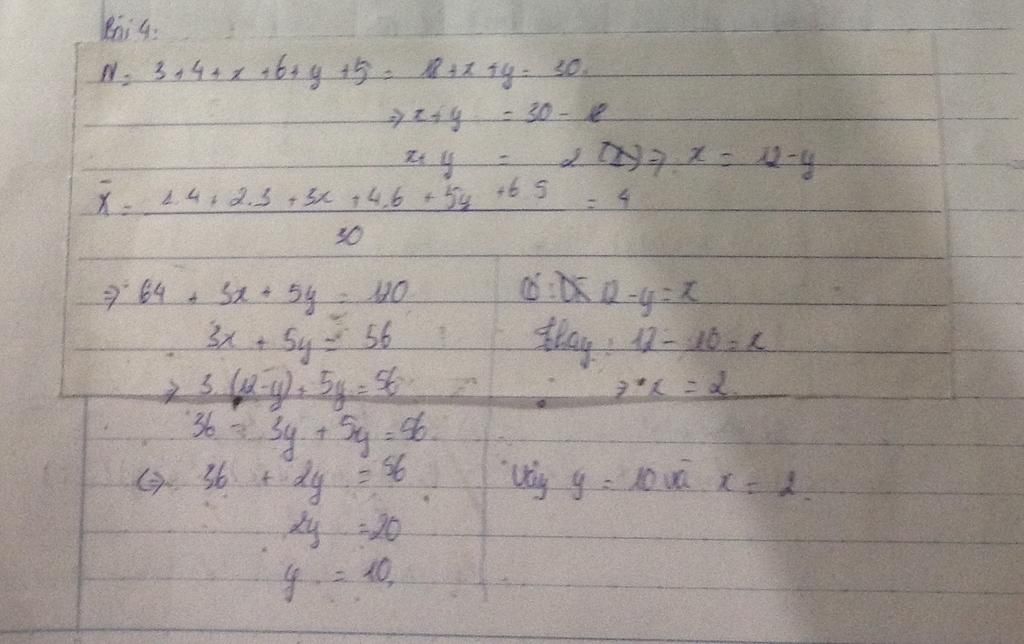 Bài 4:
N = 3+4+x+6+y+5 = 18+x+y = 30.
=> x+y = 30 - 18
x+ y = 12 => x = 12-y
X̄ = 1.4 + 2.3 + 3x + 4.6 + 5y + 6.5 = 4
30
=> 64 + 3x + 5y = 120
3x + 5y = 56
=> 3 (12-y) + 5y = 56
36 - 3y + 5y = 56.
<=> 36 + 2y = 56
2y = 20
y = 10.
12 - y = x
Thay : 12 - 10 = x
=> x = 2.
Vậy y = 10 và x = 2.